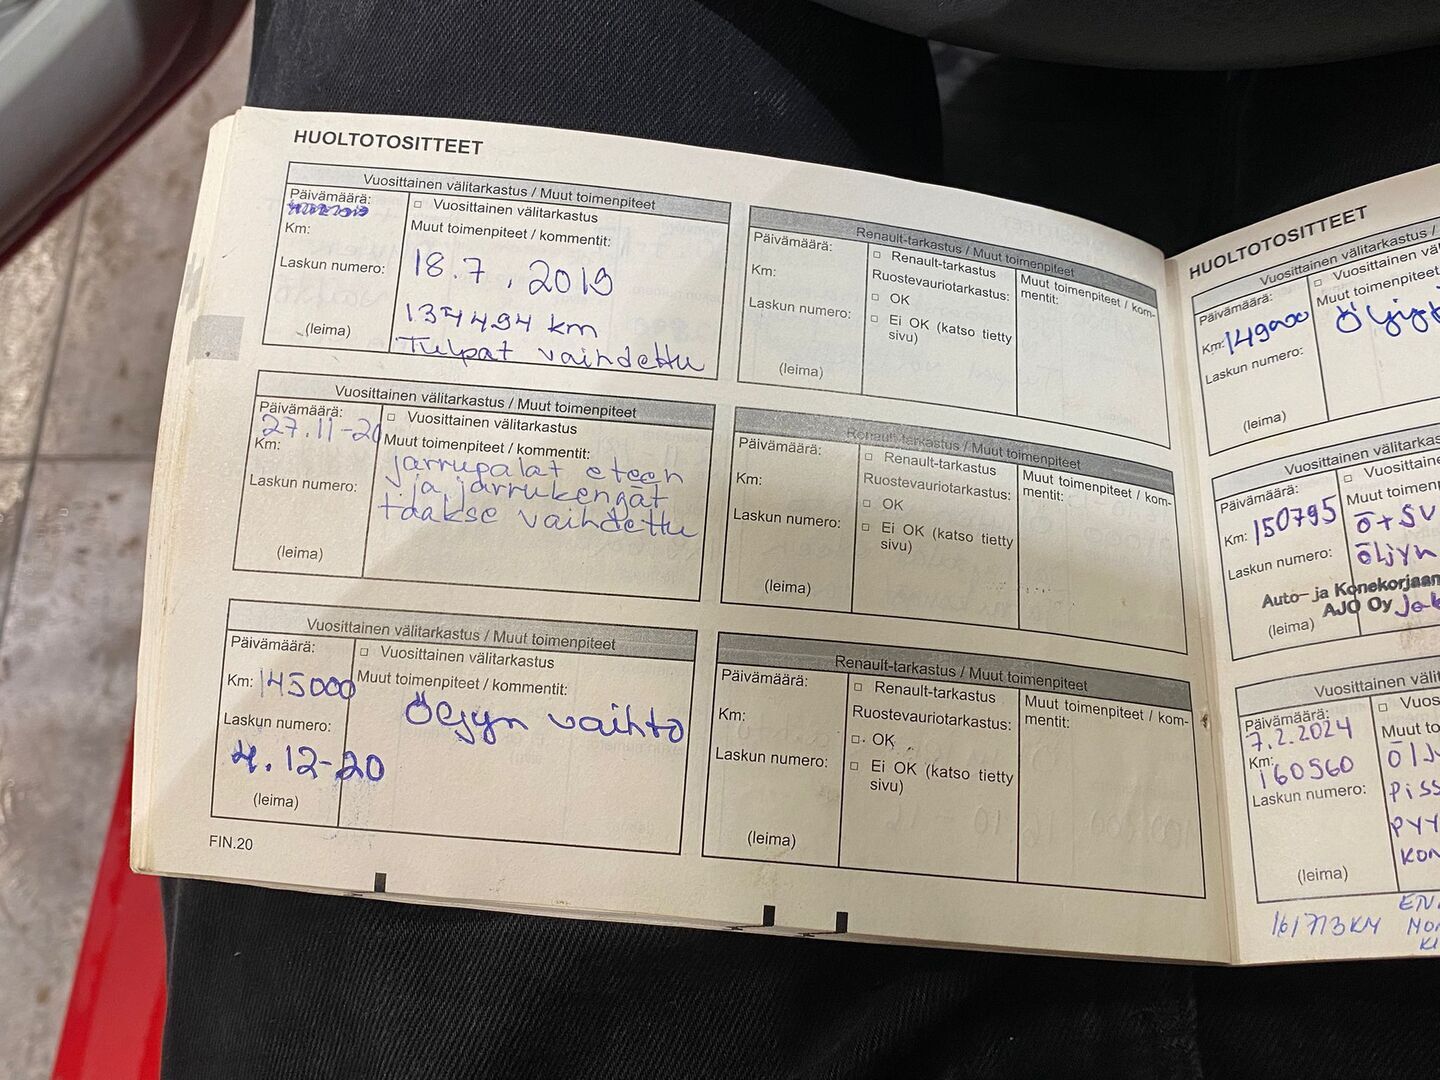 HUOLTOTOSITTEET
Vuosittainen välitarkastus / Muut toimenpiteet
Päivämäärä:
□ Vuosittainen välitarkastus
Km:
Muut toimenpiteet / kommentit:
Laskun numero:
18.7.2019
134494 km
(leima)
Tulpat vaihdettu
Renault-tarkastus / Muut toimenpiteet
Päivämäärä:
□ Renault-tarkastus
Muut toimenpiteet / kom-
mentit:
Km:
Ruostevauriotarkastus:
□ OK
Laskun numero:
□ Ei OK (katso tietty
sivu)
(leima)
Vuosittainen välitarkastus / Muut toimenpiteet
Päivämäärä:
27.11-20
□ Vuosittainen välitarkastus
Km:
Muut toimenpiteet / kommentit:
jarrupalat eteen
Laskun numero:
ja jarrukengät
taakse vaihdettu
(leima)
Renault-tarkastus / Muut toimenpiteet
Päivämäärä:
□ Renault-tarkastus
Muut toimenpiteet / kom-
mentit:
Km:
Ruostevauriotarkastus:
□ OK
Laskun numero:
□ Ei OK (katso tietty
sivu)
(leima)
Vuosittainen välitarkastus / Muut toimenpiteet
Päivämäärä:
□ Vuosittainen välitarkastus
Km: 145000
Muut toimenpiteet / kommentit:
Öljyn vaihto
Laskun numero:
4.12-20
(leima)
Renault-tarkastus / Muut toimenpiteet
Päivämäärä:
□ Renault-tarkastus
Muut toimenpiteet / kom-
mentit:
Km:
Ruostevauriotarkastus:
□ OK
Laskun numero:
□ Ei OK (katso tietty
sivu)
(leima)
FIN.20
HUOLTOTOSITTEET
Vuosittainen välitarkastus /
Päivämäärä:
□ Vuosittainen vä
Muut toimenpiteet
Km: 149000
Laskun numero:
(leima)
Vuosittainen välitarkas
Päivämäärä:
□ Vuosittaine
Muut toimen
Km: 150795
Ö+SU
Laskun numero:
öljyn
Auto- ja Konekorjaam
AJO Oy
(leima)
Vuosittainen väli
Päivämäärä:
□ Vuos
7.2.2024
Muut to
Km:
160560
ölj
Laskun numero:
Piss
PYY
KON
(leima)
161713KM